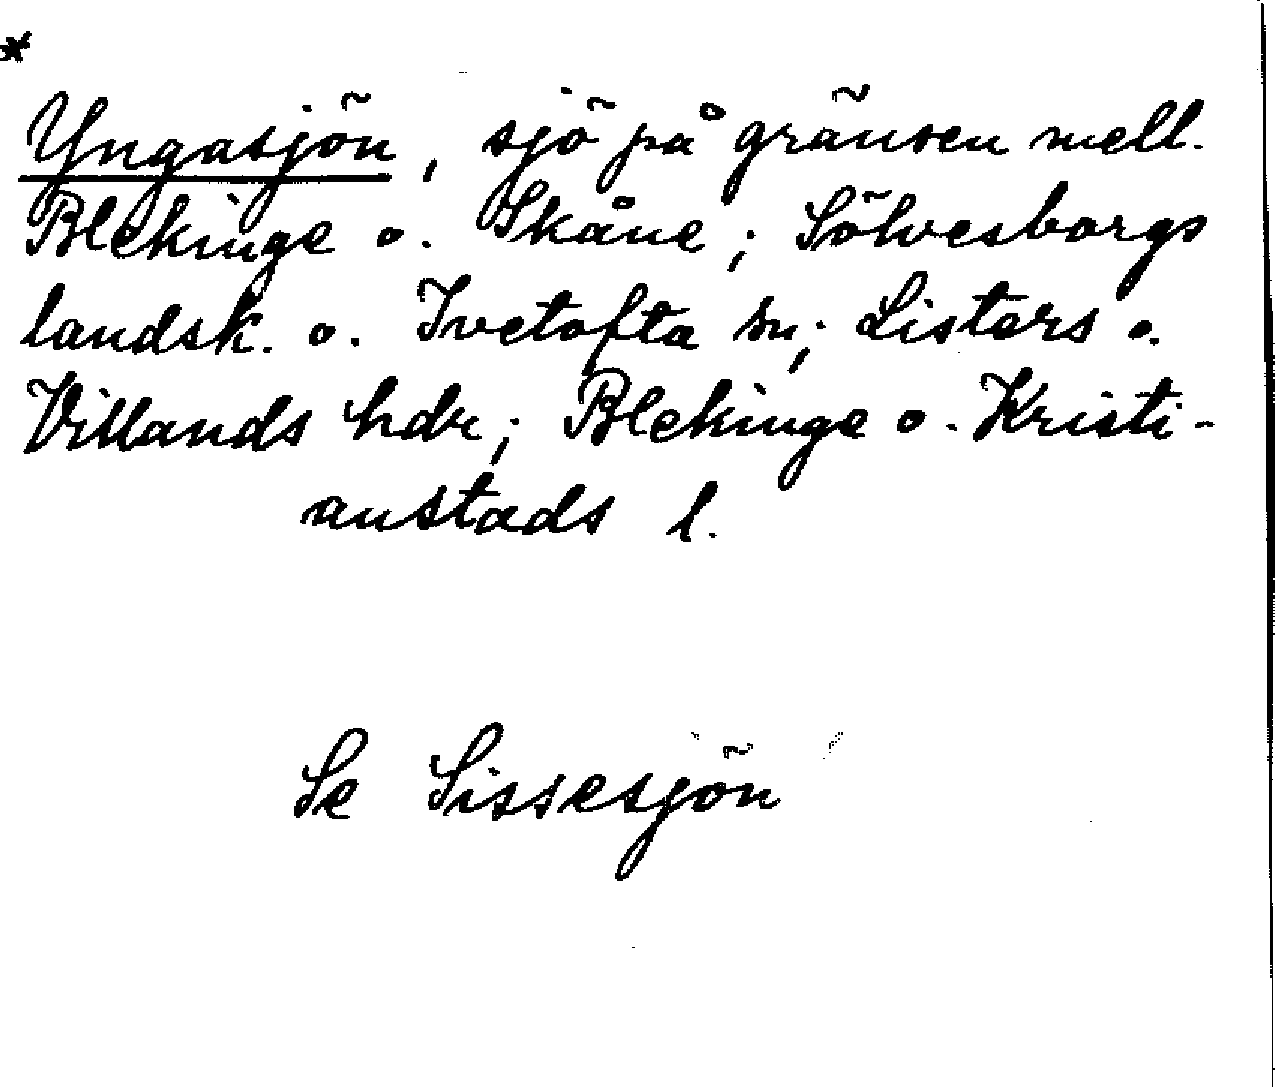 *
Yngasjön, sjö på gränsen mell.
Blekinge o. Skåne; Sölvesborgs
landsk. o. Ivetofta sn; Listers o.
Villands hdr; Blekinge o. Kristi-
anstads l.
Se Sissesjön